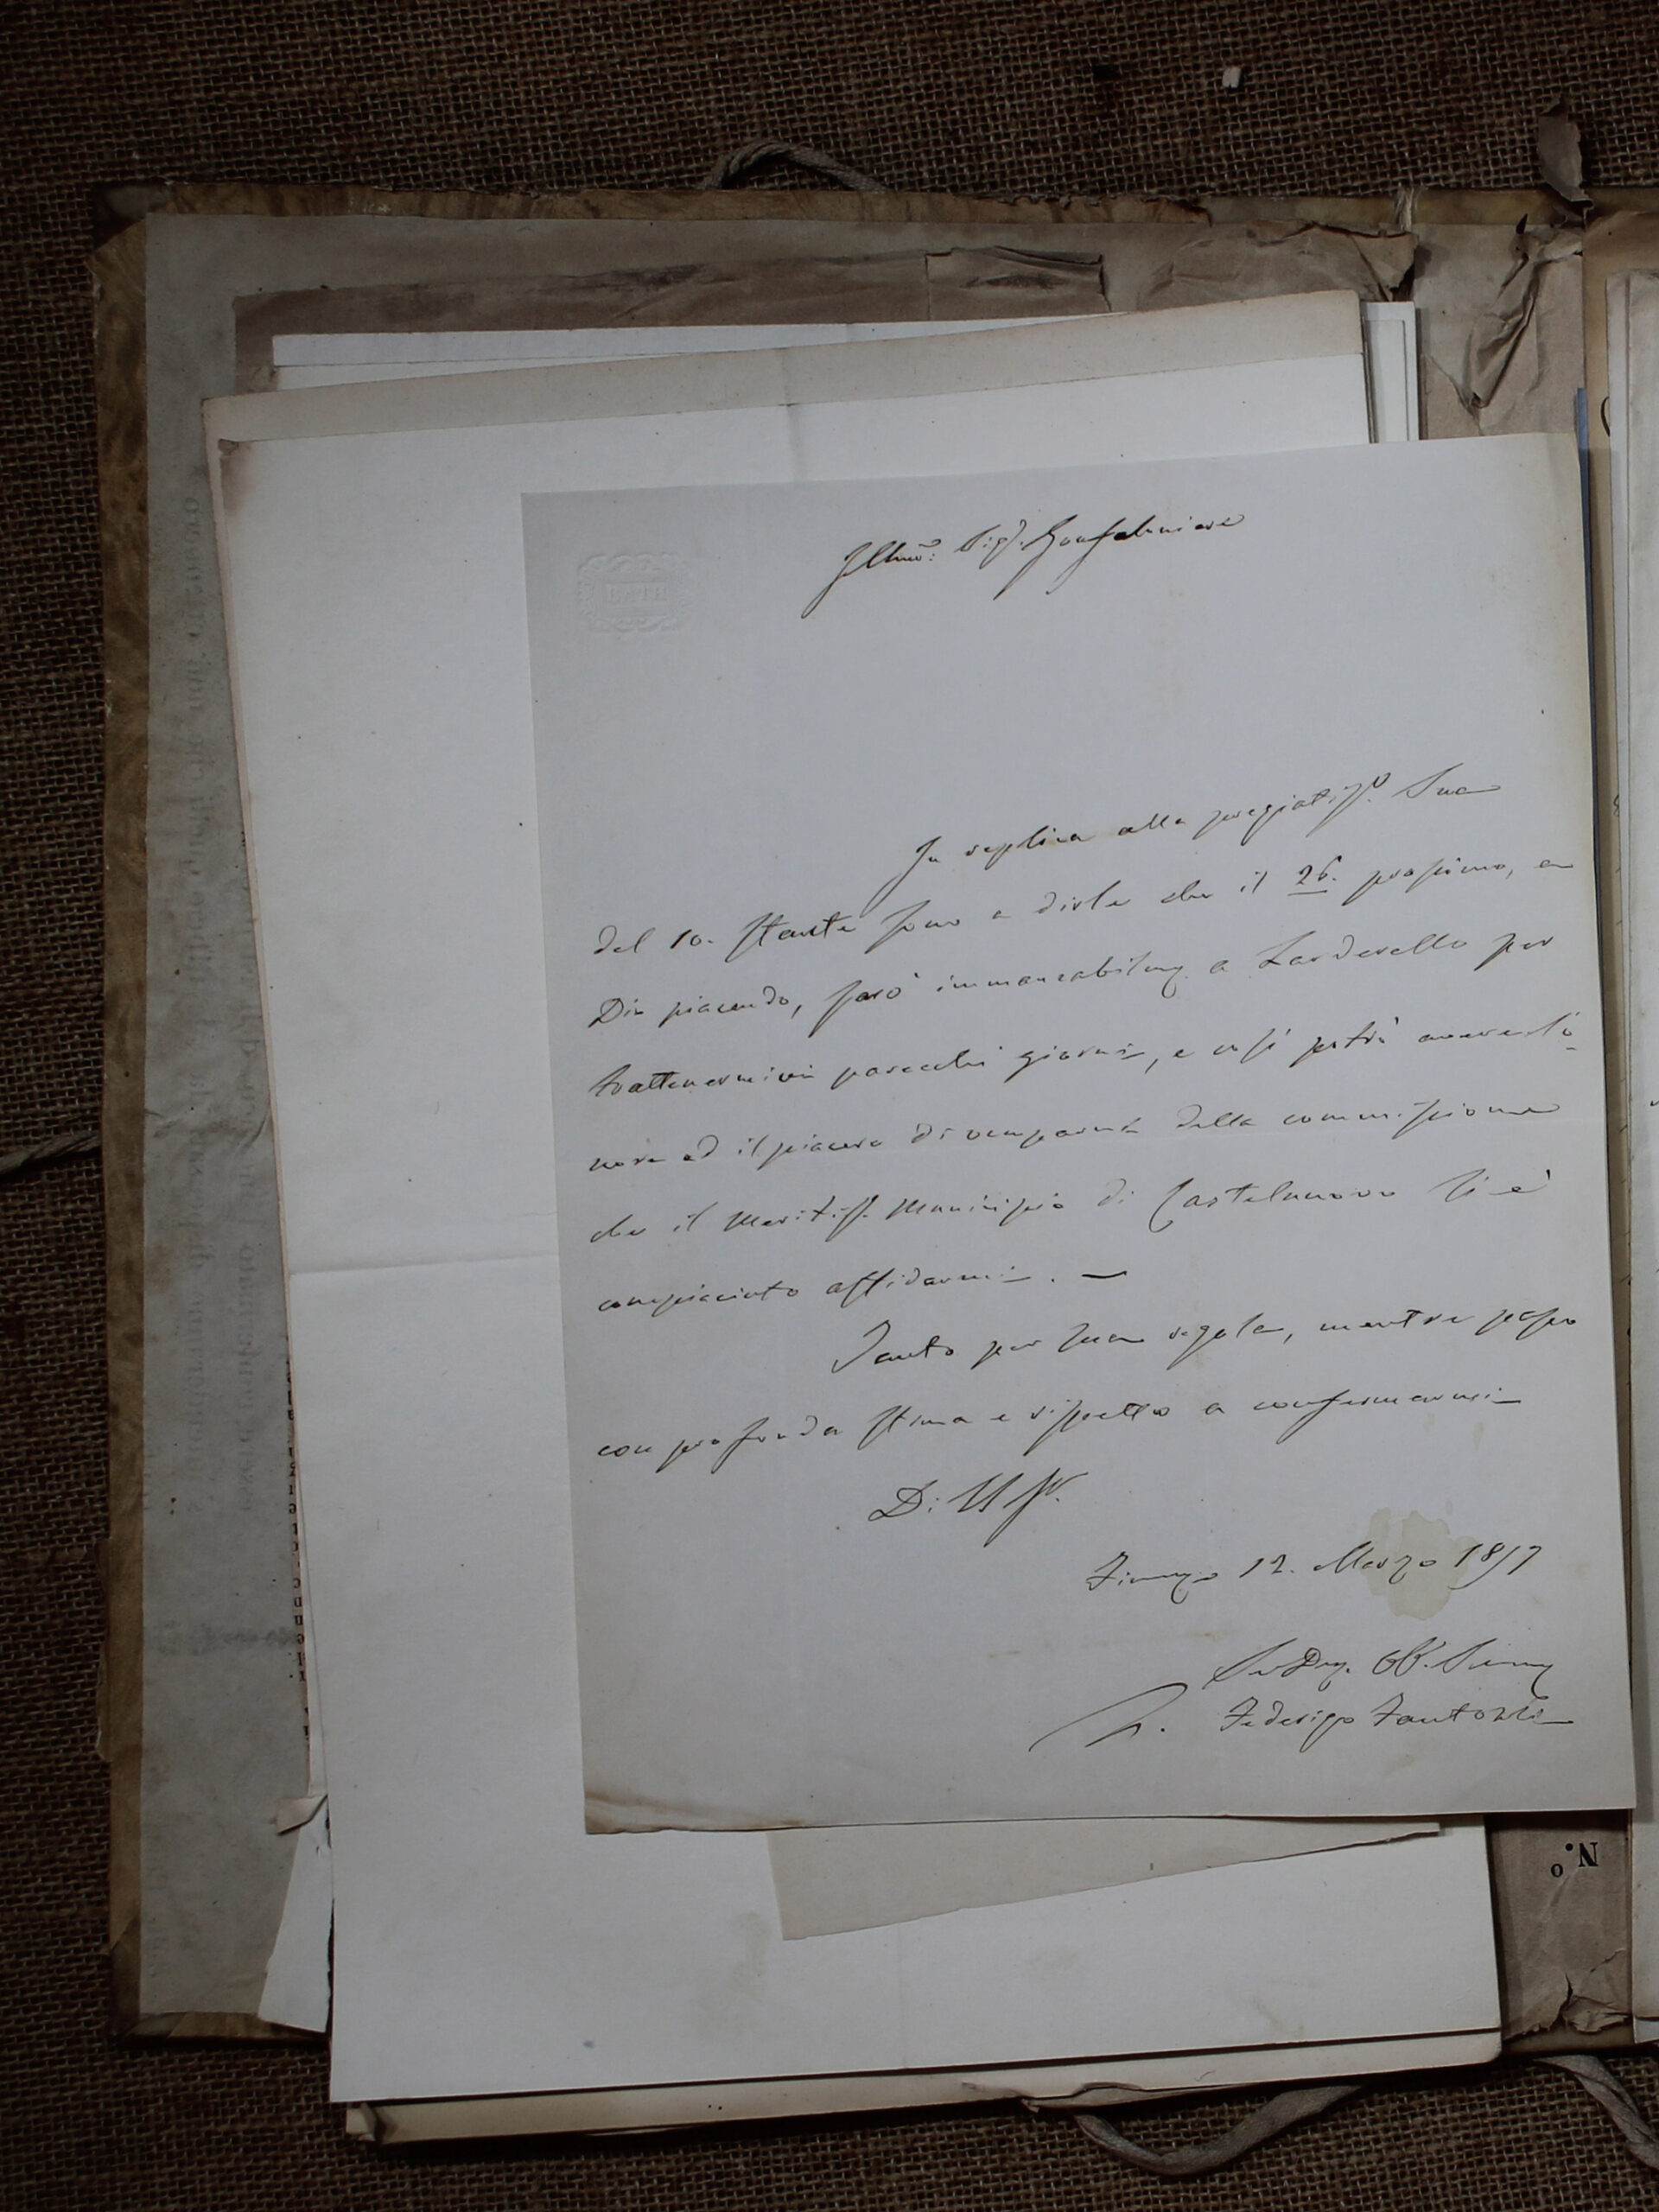 BATH
Illmo: Sig.r Gonfaloniere
In replica alla pregiatiss.a Sua
del 10. stante sono a dirle che il 26. prossimo, a
Dio piacendo, sarò immancabilmte a Larderello per
trattenermivi parecchi giorni, e così potrò avere l'o=
nore ed il piacere di occuparmi della commissione
che il Meritiss. Municipio di Castelnuovo si è
compiaciuto affidarmi. —
Tanto per sua regola, mentre passo
con profonda stima e rispetto a confermarmi
D: V S.
Firenze 12. Marzo 1857
Suo Dev. Obb. Servo
Federigo Fantozzi
N.o